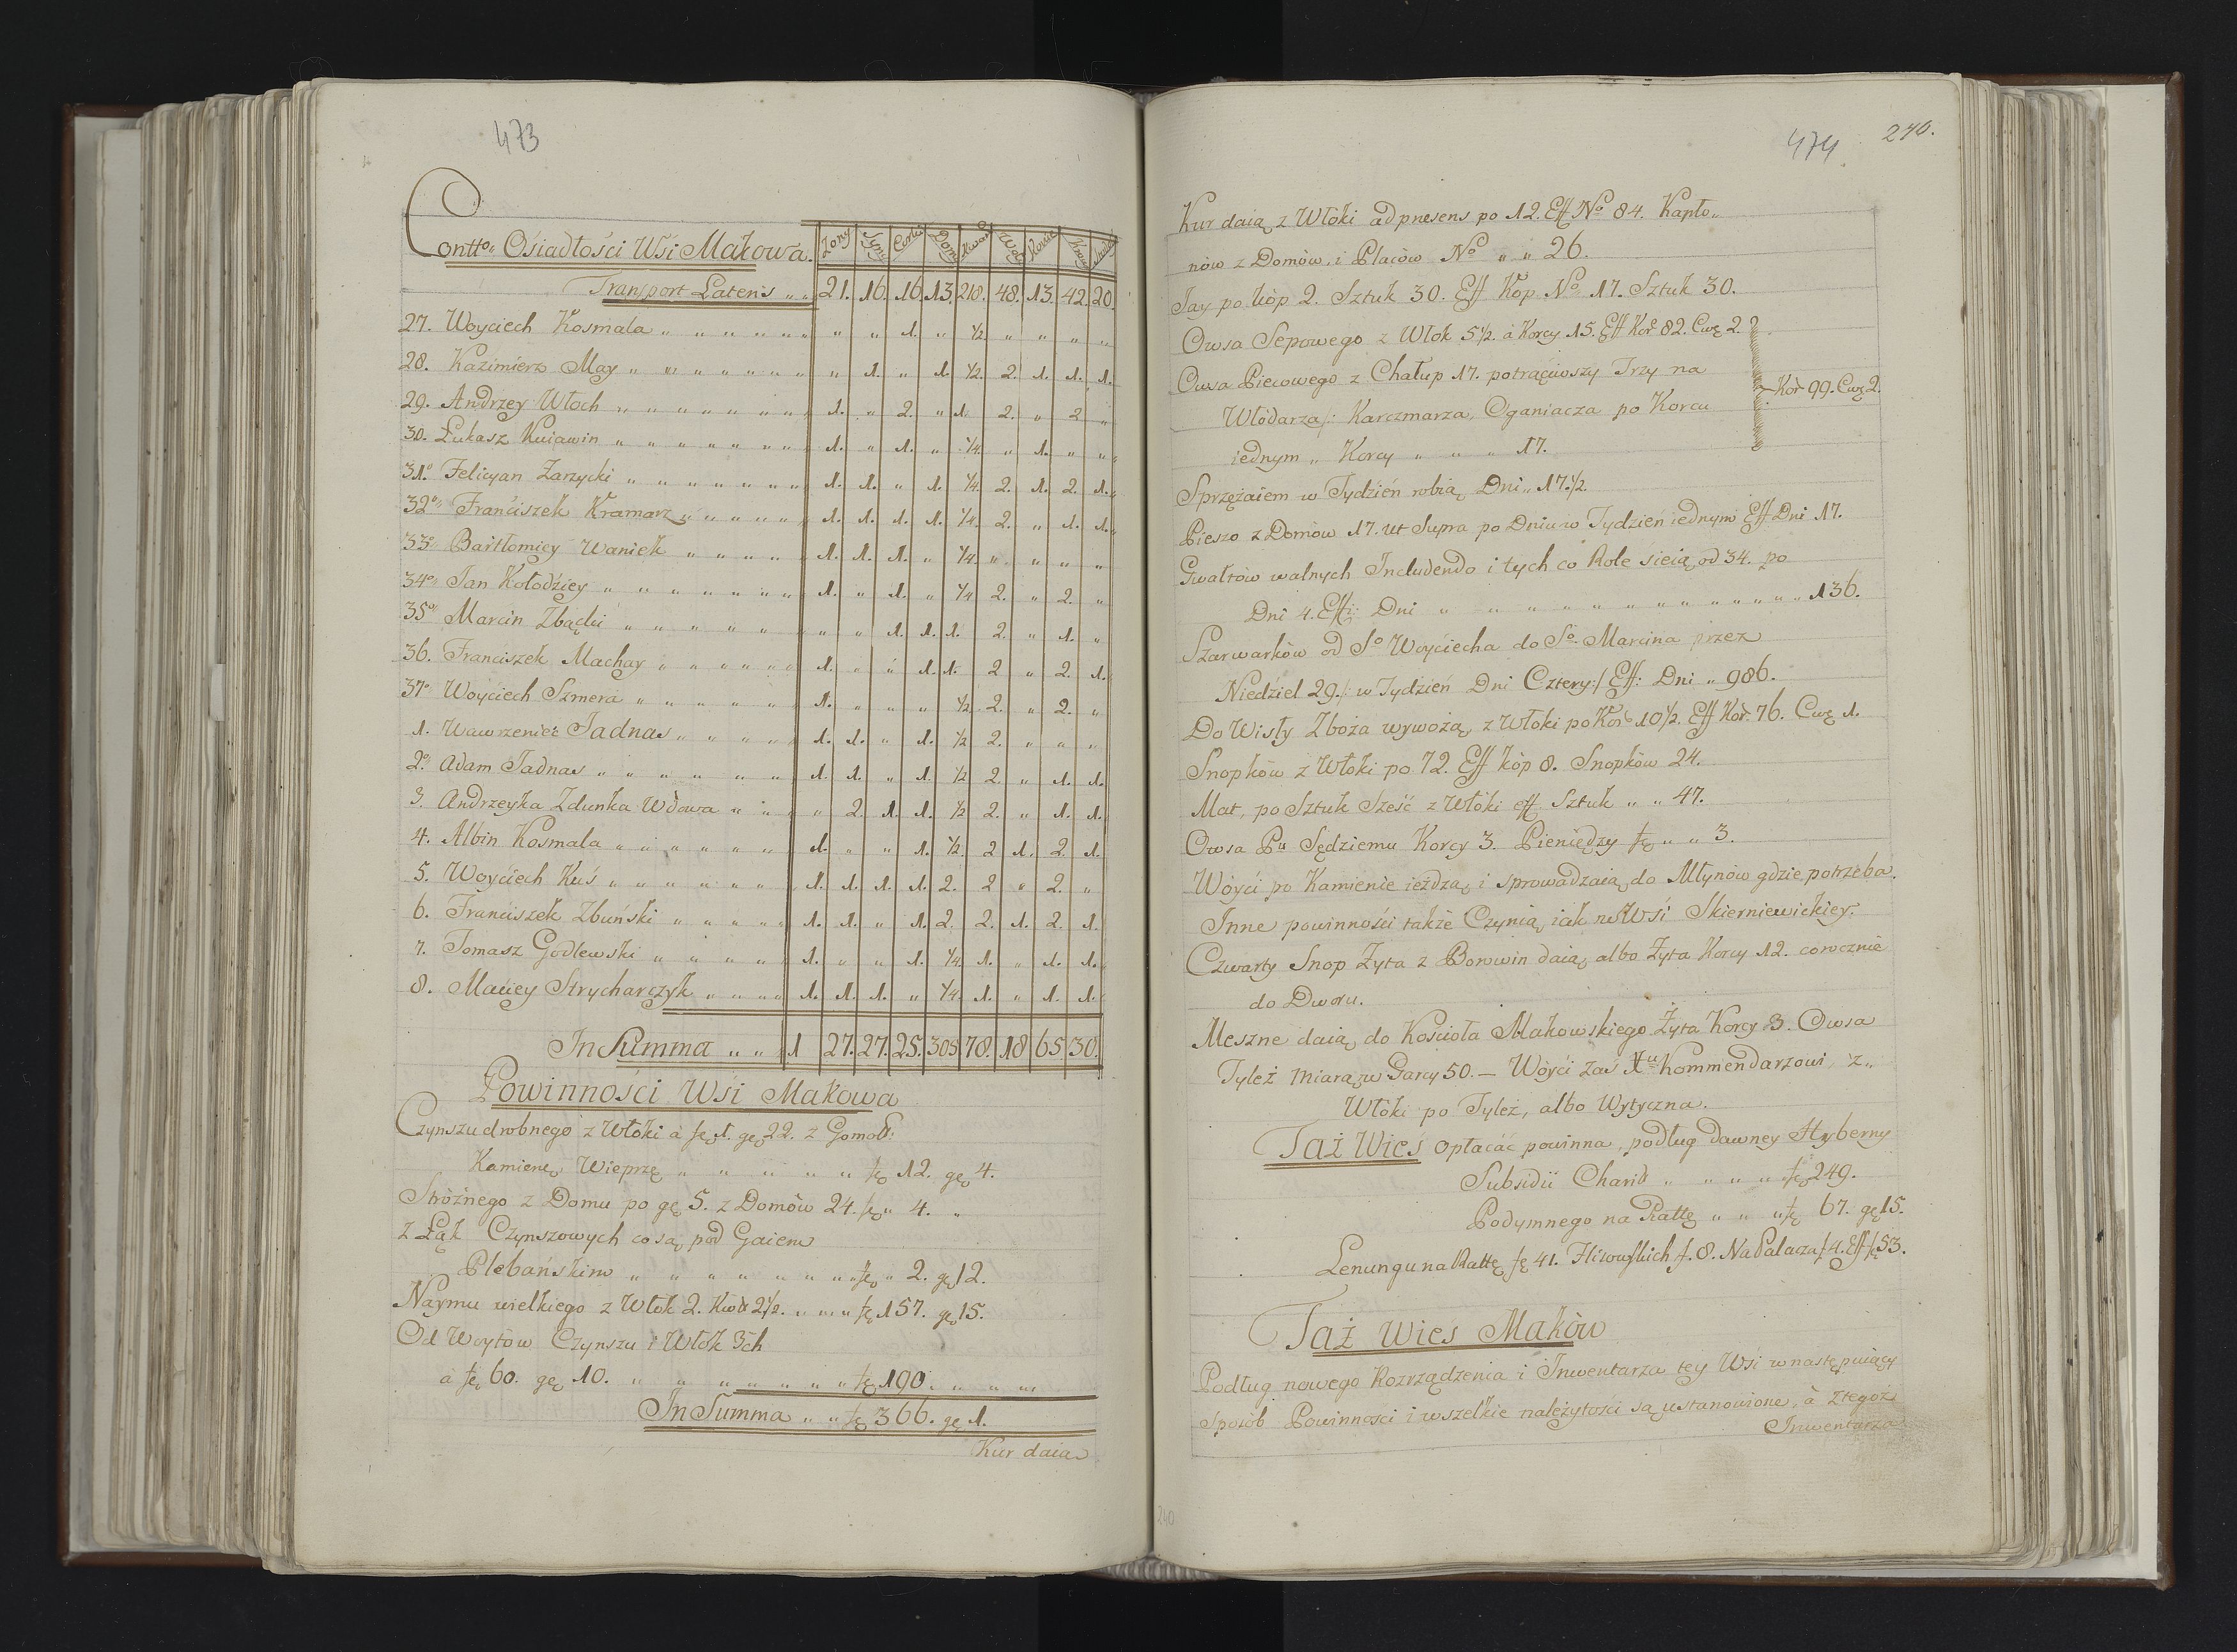 473
Contto„ Osiadłości Wsi Makowa. Żony Syny Corki Domy Kwar Woły Konie Krow
Transport Latens „ „ 21. 16. 16. 13. 218. 48. 13. 42. 20.
27. Woyciech Kosmala „ „ „ „ „ „ „ „ 1. „ ½. „ „ „ „
28. Kazimierz May „ „ „ „ „ „ „ 1. „ 1. ½. 2. 1. 1. 1.
29. Andrzey Włoch „ „ „ „ „ „ „ 1. „ 2. „ 1. 2. „ 2 „
30. Łukasz Kuiawin „ „ „ „ „ „ „ 1. „ 1. „ ¼. „ 1. „ „
31.° Felicyan Zarzycki „ „ „ „ „ „ „ 1. 1. „ 1. ¼. 2. 1. 2. 1.
32° Franciszek Kramarz „ „ „ „ „ „ 1. 1. 1. 1. ¼. 2. „ 1. 1.
33° Bartłomiey Waniek „ „ „ „ „ 1. 1. 1. „ ¼. „ „ „ „
34° Jan Kołodziey „ „ „ „ „ „ „ 1. „ 1. „ ¼ 2. „ 2. „
35° Marcin Zbącki „ „ „ „ „ „ „ „ 1. 1. 1. 2. „ 1. „
36. Franciszek Machay „ „ „ „ „ „ 1. „ „ 1. 1. 2 „ 2. 1.
37° Woyciech Szmera „ „ „ „ „ „ 1. „ „ „ ½ 2. „ 2. „
1. Wawrzeniec Jadnas „ „ „ „ „ 1. 1. „ 1. ½ 2. „ „ „
2° Adam Jadnas „ „ „ „ „ „ „ 1. 1. „ 1. ½ 2. „ 1. 1.
3. Andrzeyka Zdunka Wdowa „ „ „ „ 2. 1. 1. ½ 2. „ 1. 1.
4. Albin Kosmala „ „ „ „ „ „ 1. „ „ 1. ½. 2 1. 2. 1.
5. Woyciech Kuś „ „ „ „ „ „ „ 1. 1. 1. 1. 2. 2 „ 2. „
6. Franciszek Zbuński „ „ „ „ „ 1. 1. „ 1. 2. 2. 1. 2. 1.
7. Tomasz Godlewski „ „ „ „ „ 1. „ „ 1. ¼. 1. „ 1. 1.
8. Maciey Strycharczyk „ „ „ „ 1. 1. 1. „ ¼. 1. „ 1. 1.
In Summa „ „ 1 27. 27. 25. 305 78. 18 65. 30.
Powinności Wsi Makowa
Czynszu drobnego z Włoki à fę 1. gę 22. z Gomoł:
Kamienę Wieprzę „ „ „ „ „ „ fę 12. gę 4.
Stróżnego z Domu po gę 5. z Domów 24. fę „ 4. „
Z Łąk Czynszowych co są pod Gaiem
Plebańskim „ „ „ „ „ „ „ „ fę „ 2. gę 12.
Naymu wielkiego z Włok 2. Kwdr 2½. „ „ „ fę 157. gę 15.
Od Woytow Czynszu i Włok 3ch
à fę 60. gę 10. „ „ „ „ „ „ „ „ fę 190. „ „ „
In Summa „ „ fę 366. gę 1.
Kur daią
474 240.
Kur daią z Włoki ad præsens po 12. Eff No 84. Kapło„
nów z Domów, i Placów No „ „ 26.
Jay po kóp 2. Sztuk 30. Eff Kóp No 17. Sztuk 30.
Owsa Sepowego z Włok 5½. à Korcy 15. Eff Kor 82. Cwę 2.
Owsa Piecowego z Chałup 17. potrąciwszy Trzy na
Kor 99. Cwę 2.
Włodarza/: Karczmarza, Oganiacza po Korcu
iednym „ Korcy „ „ „ 17.
Sprzężaiem w Tydzień robią Dni „ 17.½.
Pieszo z Domów 17. ut Supra po Dniu w Tydzień iednym Eff Dni 17.
Gwałtów walnych Includendo i tych co Role sieią od 34. po
Dni 4. Eff: Dni „ „ „ „ „ „ „ „ „ „ „ „ „ 136.
Szarwarków od So Woyciecha do So Marcina przez
Niedziel 29./: w Tydzień Dni Cztery:/ Eff: Dni „ 986.
Do Wisły Zboża wywożą z Włoki po Kor 10½. Eff Kor. 76. Cwę 1.
Snopków z Włoki po 72. Eff kóp 8. Snopków 24.
Mat, po Sztuk Sześć z Włóki eff Sztuk „ „ 47.
Owsa Pu Sędziemu Korcy 3. Pieniędzy fę „ „ 3.
Wóyci po Kamienie ieżdżą i sprowadzaią do Młynów gdzie potrzeba.
Inne powinności także Czynią iak we Wsi Skierniewickiey.
Czwarty Snop Żyta z Borowin daią albo Żyta Korcy 12. corocznie
do Dworu.
Meszne daią do Kościoła Makowskiego Żyta Korcy 3. Owsa
Tyleż miarą w Garcy 50. — Wóyci zaś Xu Kommendarzowi, z„
Włóki po Tyleż, albo Wytyczna.
Taż Wieś opłacać powinna, podług dawney Hyberny
Subsidii Charit „ „ „ „ fę 249.
Podymnego na Rattę „ „ „ fę 67. gę 15.
Lenungu na Rattę fę 41. f. 8. Na Palacza f 4. Eff fę 53.
Taż Wieś Maków
Podług nowego Rozrządzenia i Inwentarza tey Wsi w następuiący
sposób Powinności i wszelkie należytości są ustanowione, à z tegoż
Inwentarza
240